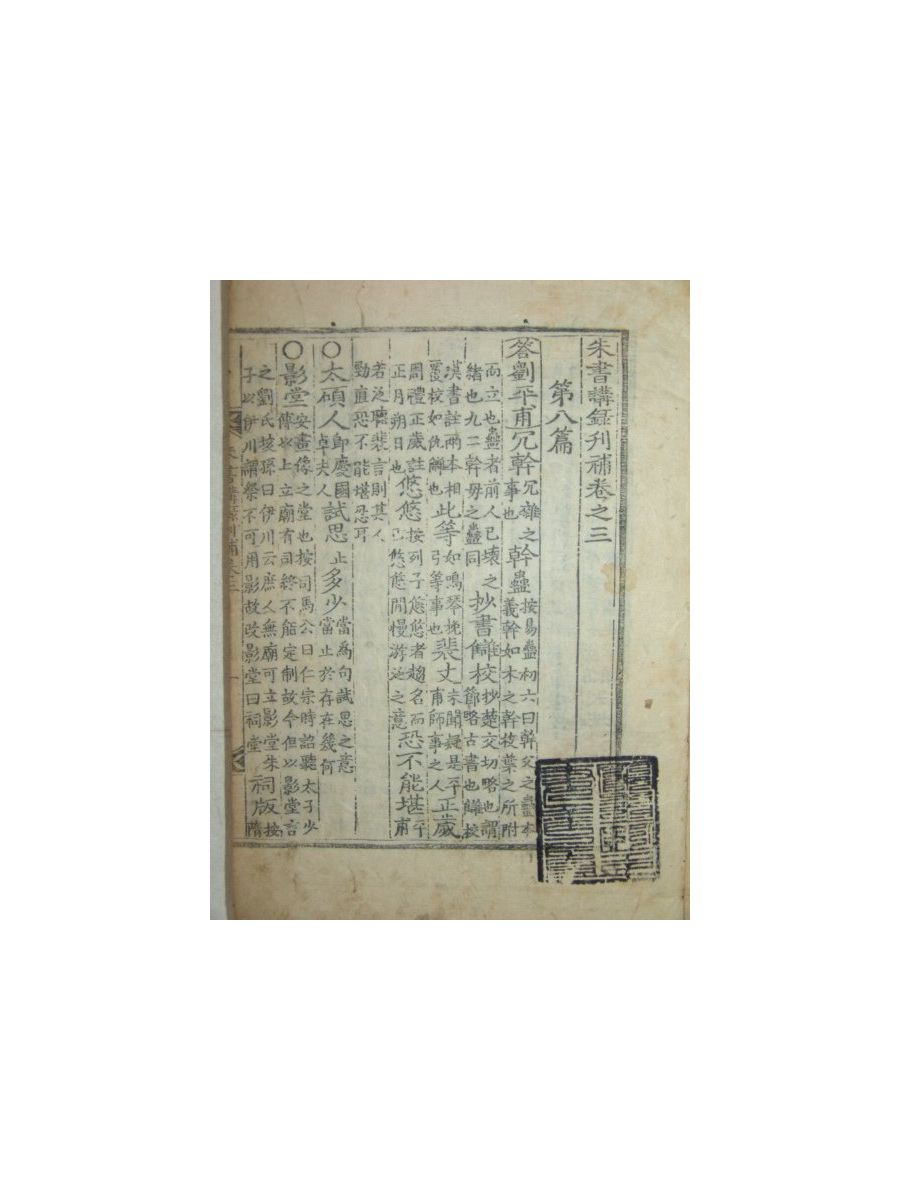 朱書講錄刊補卷之三
第八篇
答劉平甫冗幹冗雜之事也幹蠱按易蠱初六曰幹父之蠱本義幹如木之幹枝葉之所附
而立也蠱者前人已壞之緖也九二幹母之蠱同抄書讎校抄楚交切略也謂節略古書也讎校
漢書註兩本相覆校如仇讎也此等如鳴琴挽弓等事也裴丈未聞疑是平甫師事之人正歲
周禮正歲註正月朔日也悠悠按列子悠悠者趨名而已悠悠閒慢游泛之意恐不能堪平甫
若泛聽裴言則其人勁直恐不能堪忍耳
○太碩人卽慶國卓夫人試思止多少當爲句試思之意當止於存在幾何
○影堂安畫像之堂也按司馬公曰仁宗時詔聽太子少傅以上立廟有司終不能定制故今但以影堂言
之劉氏垓孫曰伊川云庶人無廟可立影堂朱子以伊川謂祭不可用影故改影堂曰祠堂祠版按隋
朱書講錄刊補卷三
一